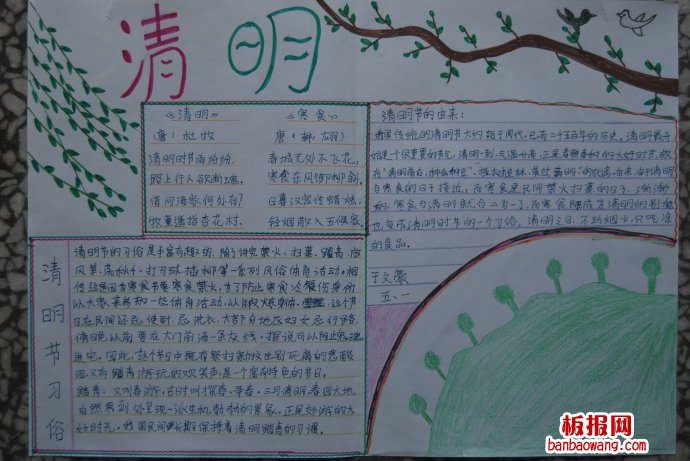 清明
《清明》
(唐) 杜牧
清明时节雨纷纷,
路上行人欲断魂。
借问酒家何处有?
牧童遥指杏花村.
《寒食》
唐 (韩翃)
春城无处不飞花,
寒食东风御柳斜。
日暮汉宫传蜡烛,
轻烟散入五侯家.
清明节的由来:
我国传统的清明节大约始于周代,已有二千五百年的历史。清明最
始是一个很重要的节气,清明一到,气温升高,正是春耕春种的大好时节,故
有“清明前后,种瓜种豆”。“植树造林,莫过清明”的农谚。由于清明
与寒食的日子接近,而寒食是民间禁火扫墓的日子,渐渐
的,寒食与清明就合二为一了,而寒食既成为清明的别称
也变成清明时节的一个习俗,清明之日,不动烟火,只吃凉
的食品。
于文
五.一
清明节习俗
清明节的习俗是丰富有趣的,除了讲究禁火、扫墓、踏青、放
风筝、荡秋千、打马球、插柳等一系列风俗体育活动。相
传这是因为寒食节要寒食禁火,为了防止寒食冷餐伤身,所
以大家来参加一些体育活动,以
在民间还忌使针,忌洗衣,大部分地区妇女忌行路。
傍晚以前,要在大门前洒一条灰线,据说可以阻止鬼魂
进宅。因此,这个节日中既有祭扫新坟生别死离的悲酸
泪,又有踏青游玩的欢笑声,是一个富有特色的节日。
踏青:又叫春游,古时叫探春、寻春。三月清明,春回大地,
自然界到处呈现一派生机勃勃的景象,正是郊游的大
好时光。我国民间长期保持着清明踏青的习惯。
板报网
banbaowang.com